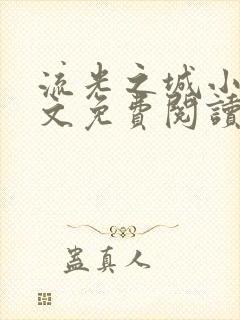 流光之城小
文免費閱讀
蠱真人